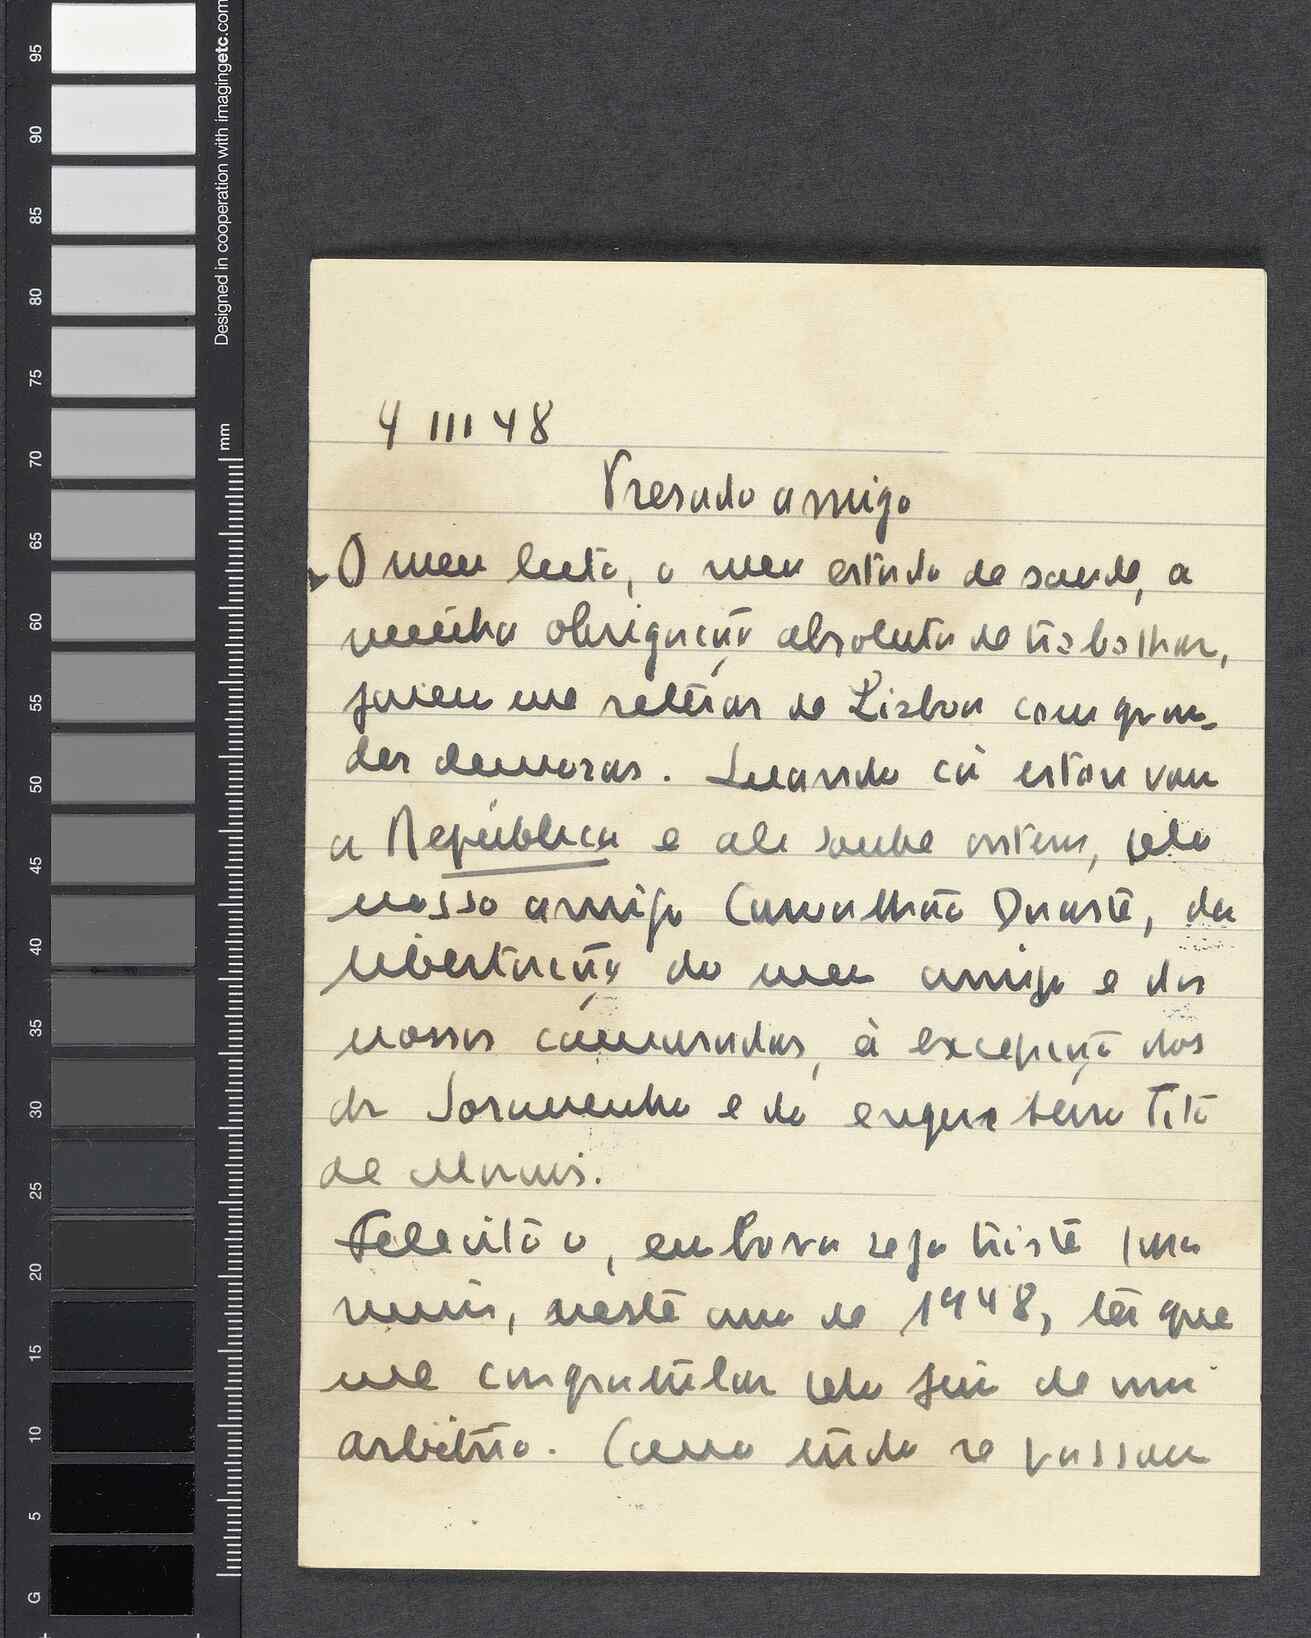 95
90
85
80
75
70
65
60
55
50
45
40
35
30
25
20
15
10
5
G
Designed in cooperation with imagingetc.com
mm
4 III 48
Presado amigo
O meu luto, o meu estado de saude, a
minha obrigação absoluta de trabalhar,
fazem me retirar de Lisboa com gran-
des demoras. Quando cá estou vou
a República e ali soube ontem, pelo
nosso amigo Carvalhão Duarte, da
libertação do meu amigo e dos
nossos camaradas, à excepção dos
dr Soromenho e do engenheiro Tito
de Morais.
Felicito o, embora seja triste para
mim, neste ano de 1948, ter que
me congratular pelo fim de um
arbitrio. Como tudo se passou